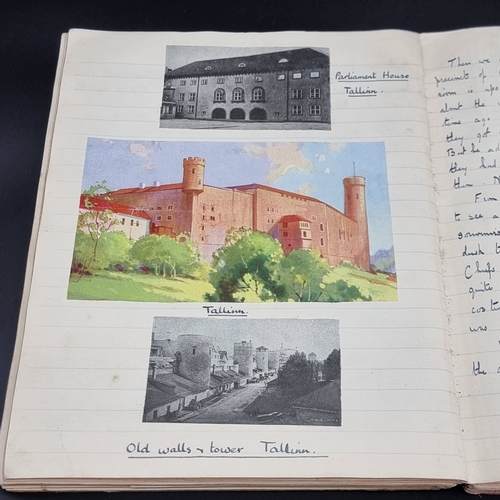 Parliament House
Tallinn.
Tallinn.
Old walls & tower Tallinn.
Then we
precinct of
room is
about the
time ago
they got
But he
they had
them. N
to see a
dusk t
Chefs
quite
was
the